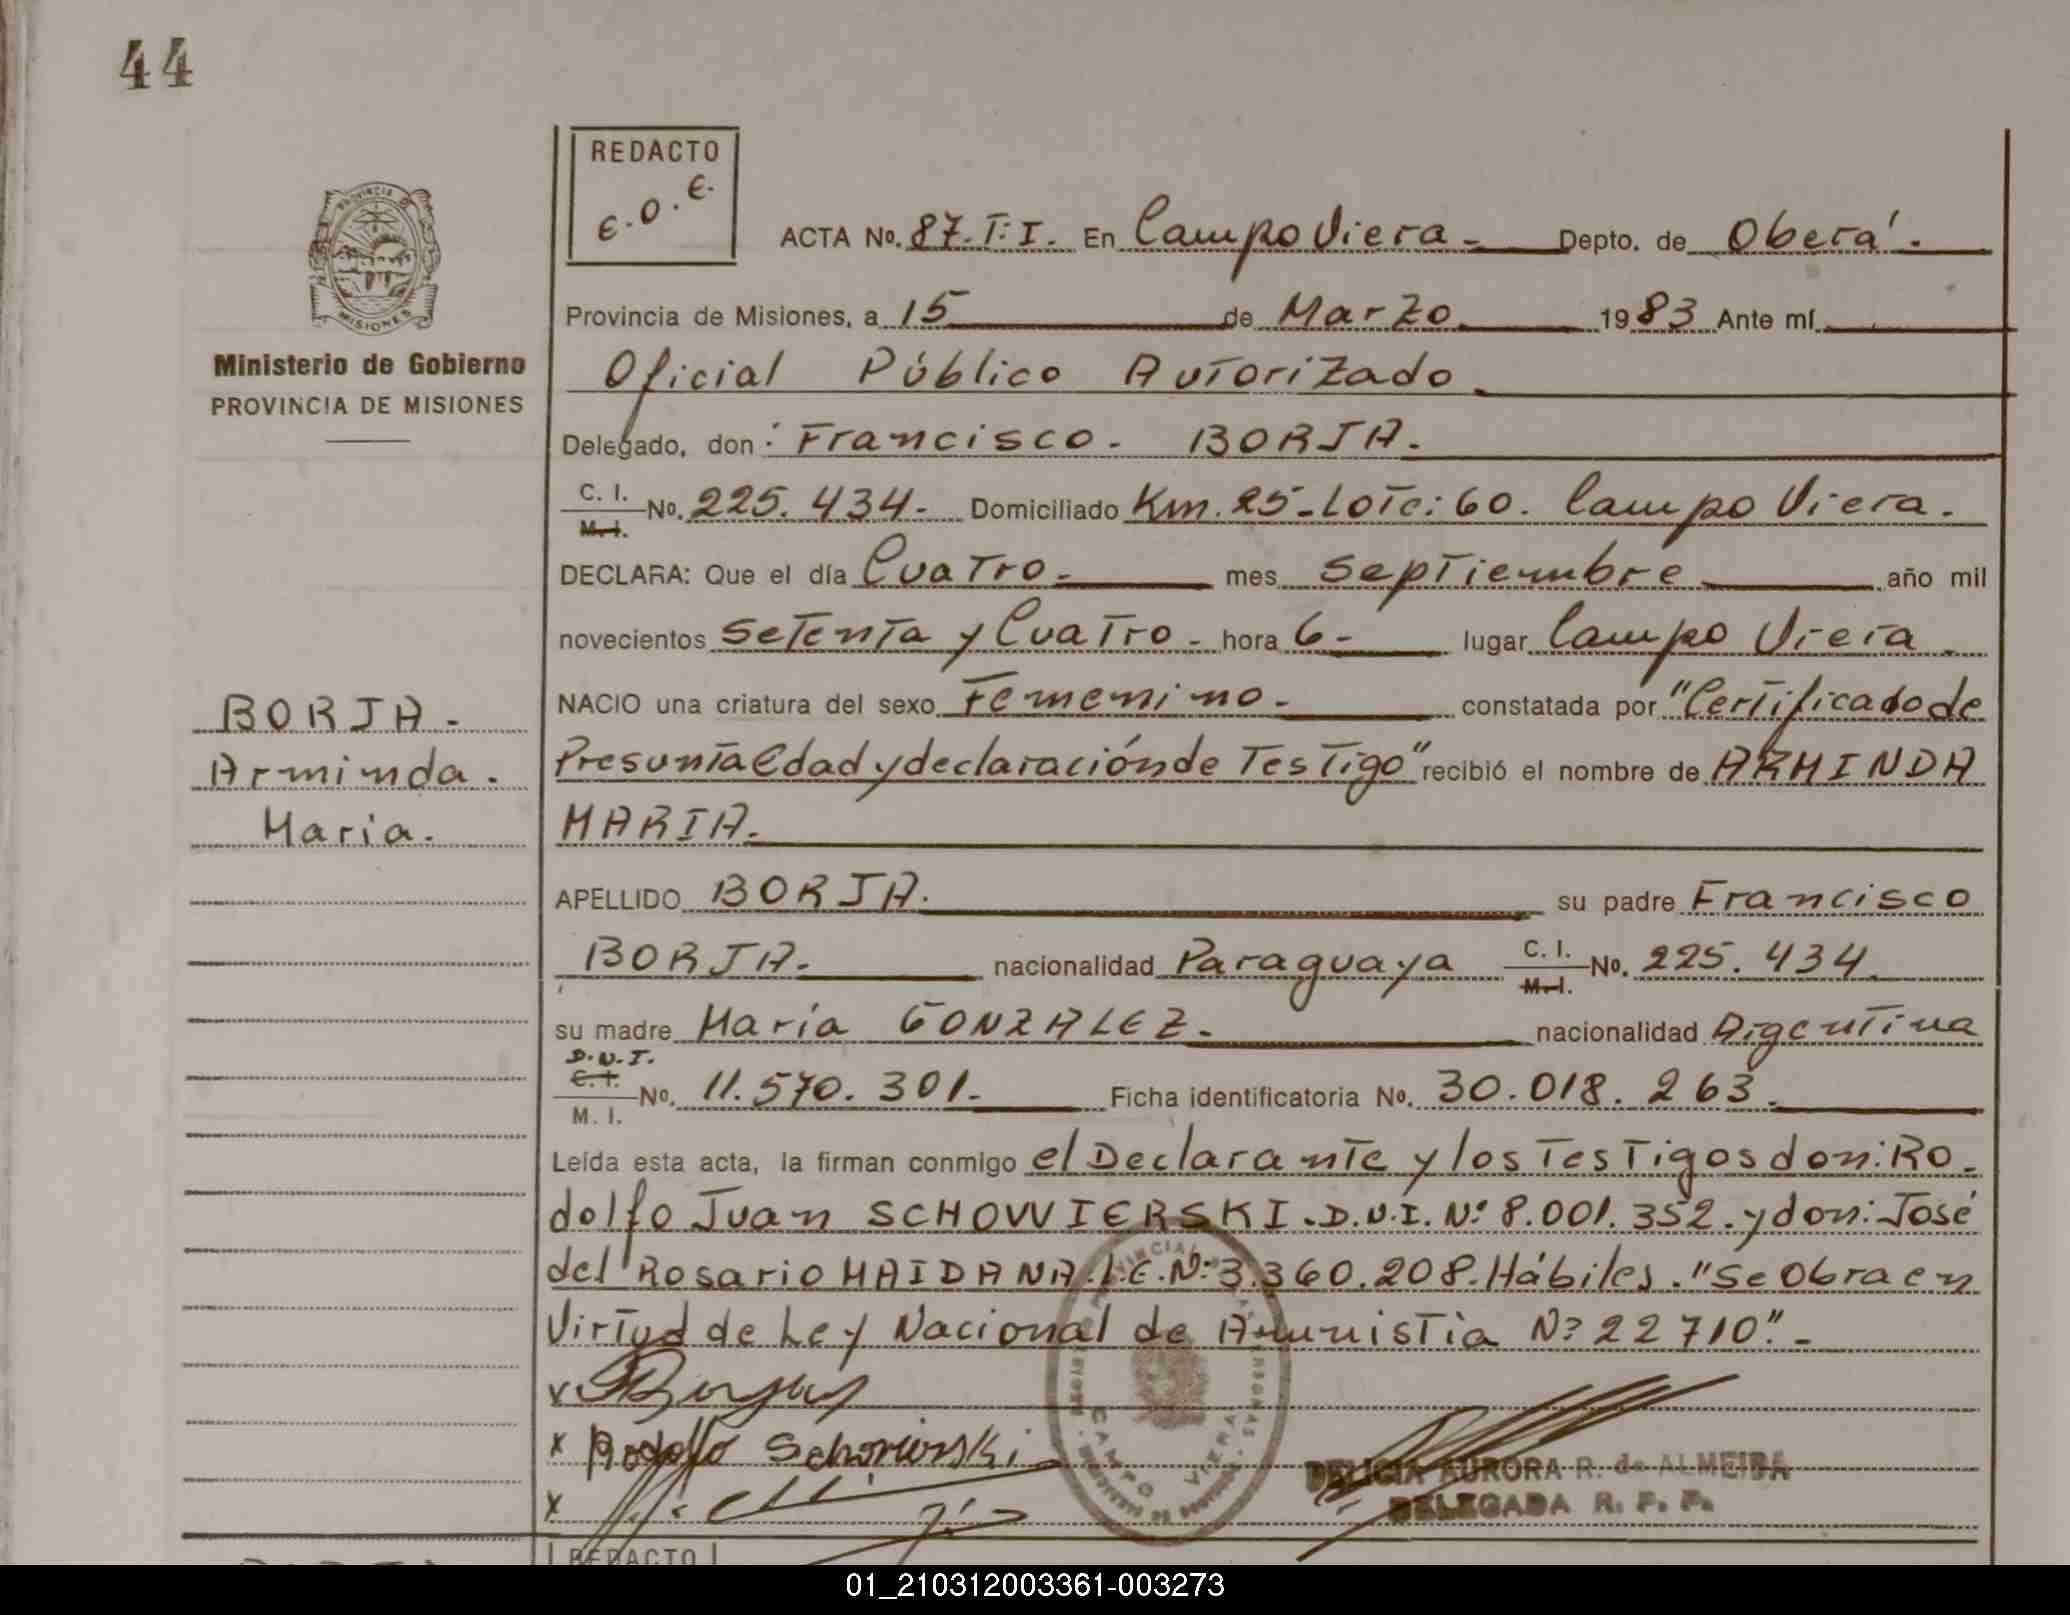 44
REDACTO
E.O.E.
PROVINCIA
MISIONES
ACTA No. 87.T:I. En Campo Viera. Depto. de Oberá.
Provincia de Misiones, a 15 de Marzo 1983 Ante mí
Ministerio de Gobierno
PROVINCIA DE MISIONES
Oficial Público Autorizado
Delegado, don: Francisco. BORJA.
C. I. M. I. No. 225.434. Domiciliado Km. 25-Lote: 60. Campo Viera.
DECLARA: Que el día Cuatro. mes septiembre año mil
novecientos setenta y Cuatro. hora 6- lugar Campo Viera
BORJA.
Arminda.
Maria.
NACIO una criatura del sexo Femenino. constatada por "Certificado de
Presunta Edad y declaración de Testigo" recibió el nombre de ARMINDA
MARIA.
APELLIDO BORJA. su padre Francisco
BORJA. nacionalidad Paraguaya C. I. M. I. No. 225.434
su madre María GONZALEZ. nacionalidad Argentina
D.N.I. C. I. M. I. No. 11.570.301. Ficha identificatoria No. 30.018.263.
Leída esta acta, la firman conmigo el Declarante y los Testigos don: Ro-
dolfo Juan SCHOWIERSKI.D.N.I. Nº 8.001.352. y don: José
del Rosario MAIDANA.L.E.Nº:3.360.208.Hábiles."se Obra en
Virtud de Ley Nacional de Amnistia Nº 22710".-
x
x Rodolfo Schowierski
x
CAMPO VIERA
DELICIA AURORA R. de ALMEIDA
DELEGADA R. P. P.
REDACTO
01_210312003361-003273